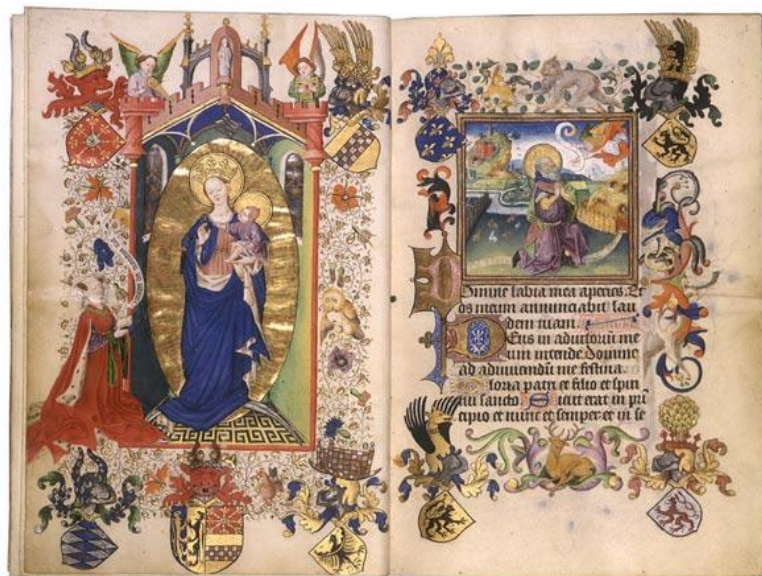 Domine labia mea aperies. Et
os meum annunciabit lau
dem tuam.
Deus in adiutoriū me
um intende Domine
ad adiuvendū me festina.
Gloria patri et filio et spiri
tui sancto. Sicut erat in pri
cipio et nunc et semper et in se